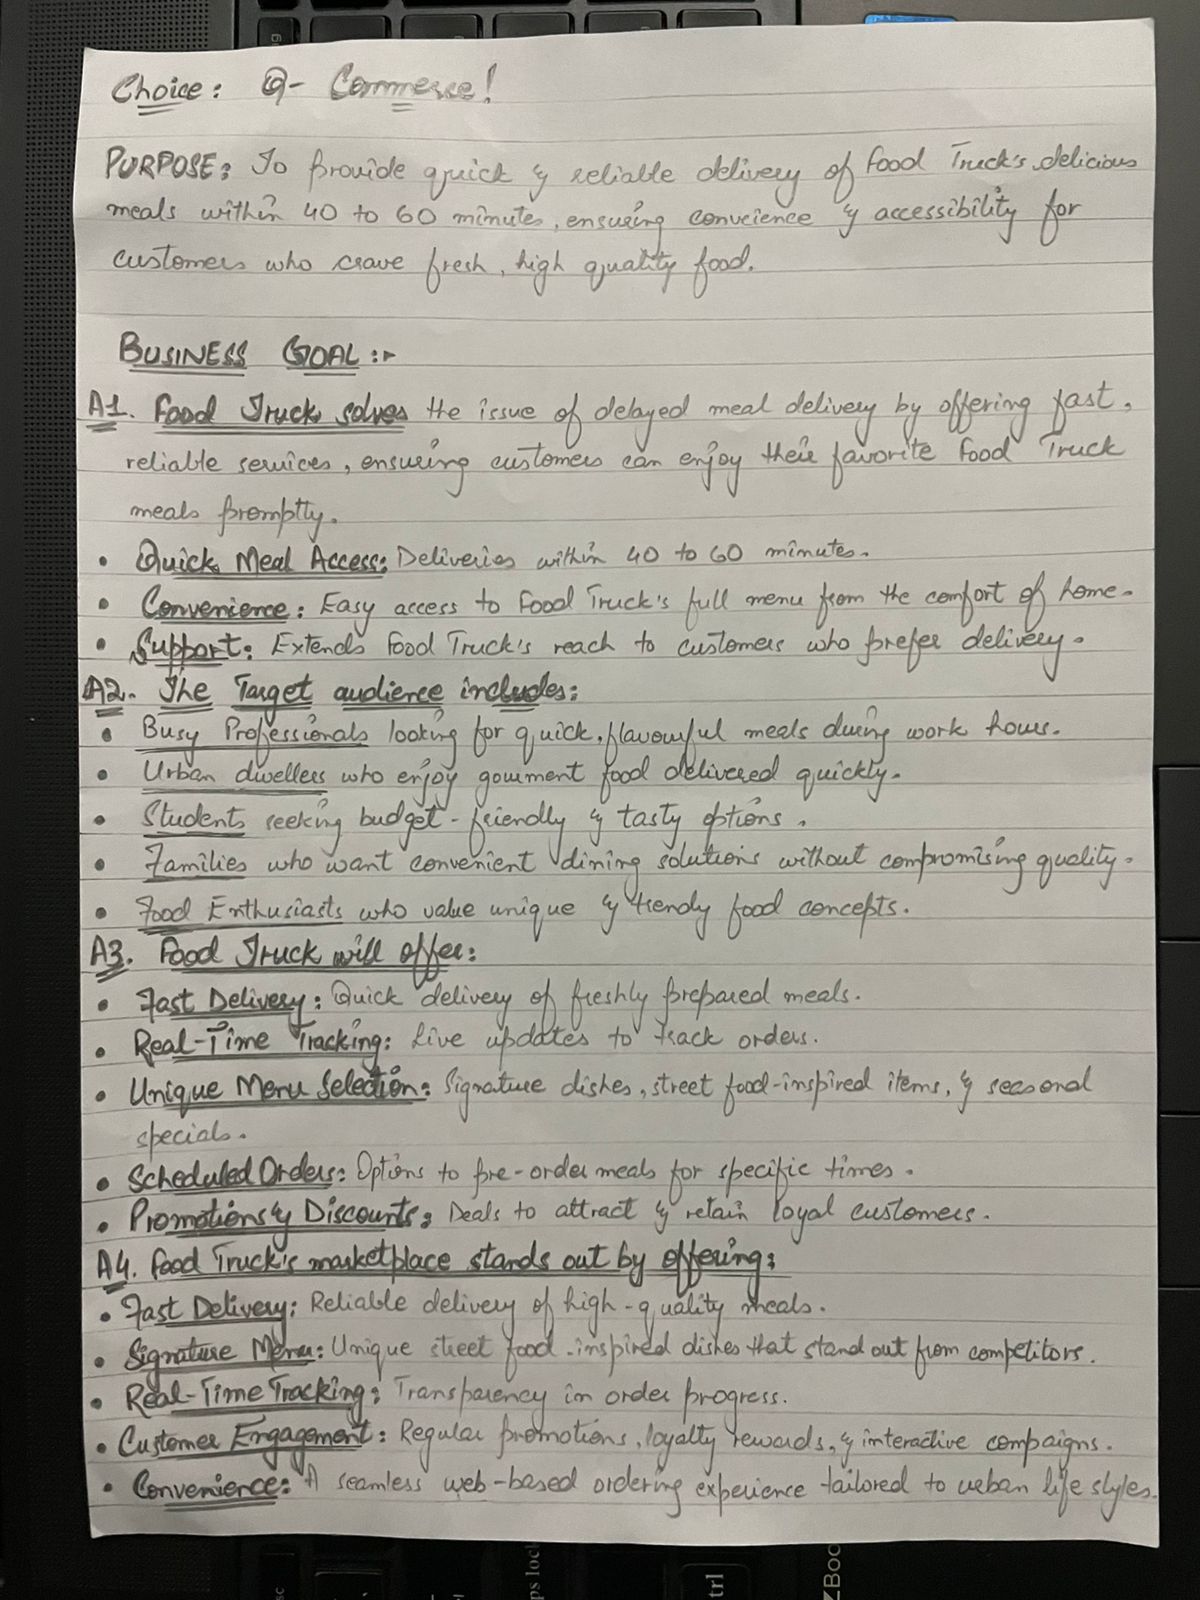 Choice: Q- Commerce!
PURPOSE: To provide quick & reliable delivery of Food Truck's delicious
meals within 40 to 60 minutes, ensuring convcience & accessibility for
customers who crave fresh, high quality food.
BUSINESS GOAL :-
A1. Food Truck solves the issue of delayed meal delivery by offering fast,
reliable services, ensuring customers can enjoy their favorite Food Truck
meals promptly.
• Quick Meal Access: Deliveries within 40 to 60 minutes.
• Convenience: Easy access to Food Truck's full menu from the comfort of home.
• Support: Extends Food Truck's reach to customers who prefer delivery.
A2. The Target audience includes:
• Busy Professionals looking for quick, flavourful meals during work hours.
• Urban dwellers who enjoy gourment food delivered quickly.
• Students seeking budget-friendly & tasty options.
• Families who want convenient dining solutions without compromising quality.
• Food Enthusiasts who value unique & trendy food concepts.
A3. Food Truck will offer:
• Fast Delivery: Quick delivery of freshly prepared meals.
• Real-Time Tracking: Live updates to track orders.
• Unique Menu Selection: Signature dishes, street food-inspired items, & seasonal
specials.
• Scheduled Orders: Options to pre-order meals for specific times.
• Promotions & Discounts: Deals to attract & retain loyal customers.
A4. Food Truck's marketplace stands out by offering:
• Fast Delivery: Reliable delivery of high-quality meals.
• Signature Menu: Unique street food-inspired dishes that stand out from competitors.
• Real-Time Tracking: Transparency in order progress.
• Customer Engagement: Regular promotions, loyalty rewards, & interactive compaigns.
• Convenience: A seamless web-based ordering experience tailored to urban life styles.
ctrl
ZBoo